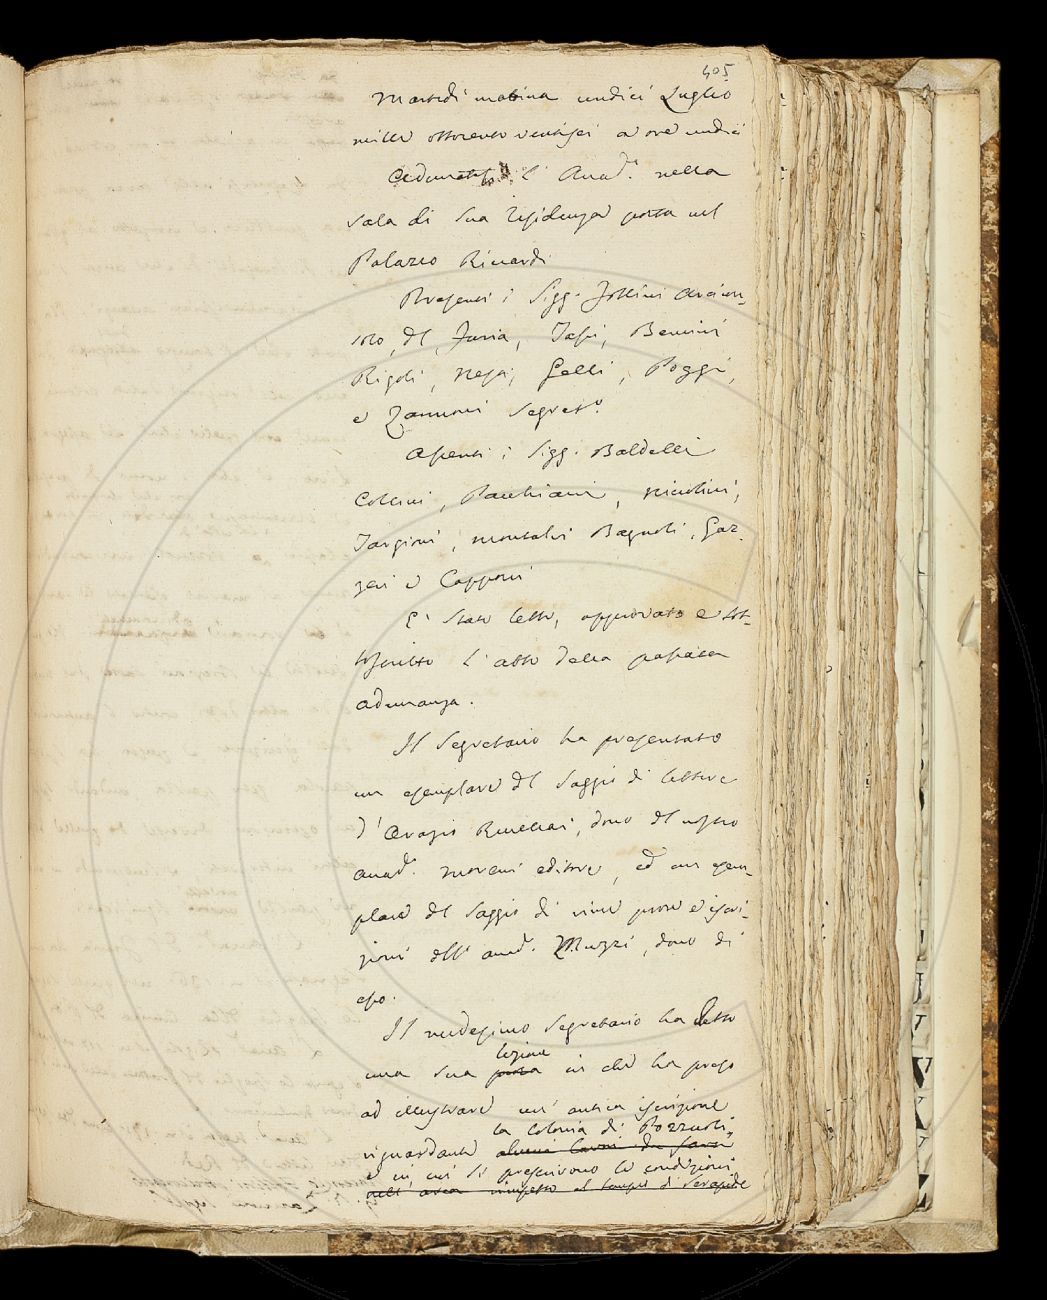 405
Martedì mattina undici Luglio
mille ottocento ventisei a ore undici
Adunatasi l'Accad.a nella
sala di sua residenza posta nel
Palazzo Riccardi
Presenti i Sigg. Follini Arcicon-
solo, del Furia, Sassi, Bencini
Rigoli, Nesti, Gelli, Poggi,
e Zannoni Segret.o
Assenti i Sigg. Baldelli
Collini, Pacchiani, Niccolini,
Targioni, Montalvi Bagnoli, Gaz-
zeri e Capponi
E' stato letto, approvato e sot-
toscritto l'atto della passata
adunanza.
Il Segretario ha presentato
un esemplare del Saggio di lettere
d'Orazio Rucellai, dono del nostro
accad.o Moreni editore, ed un esem-
plare del Saggio di varie prose e iscri-
zioni dell'accad.o Muzzi, dono di
esso.
Il medesimo Segretario ha letto
lezione
una sua prosa in che ha preso
ad illustrare un'antica iscrizione
la colonia di Pozzuoli,
riguardante alcuni lavori da farsi
e in cui si prescrivono le condizioni
nell'area rimpetto al tempio di Serapide